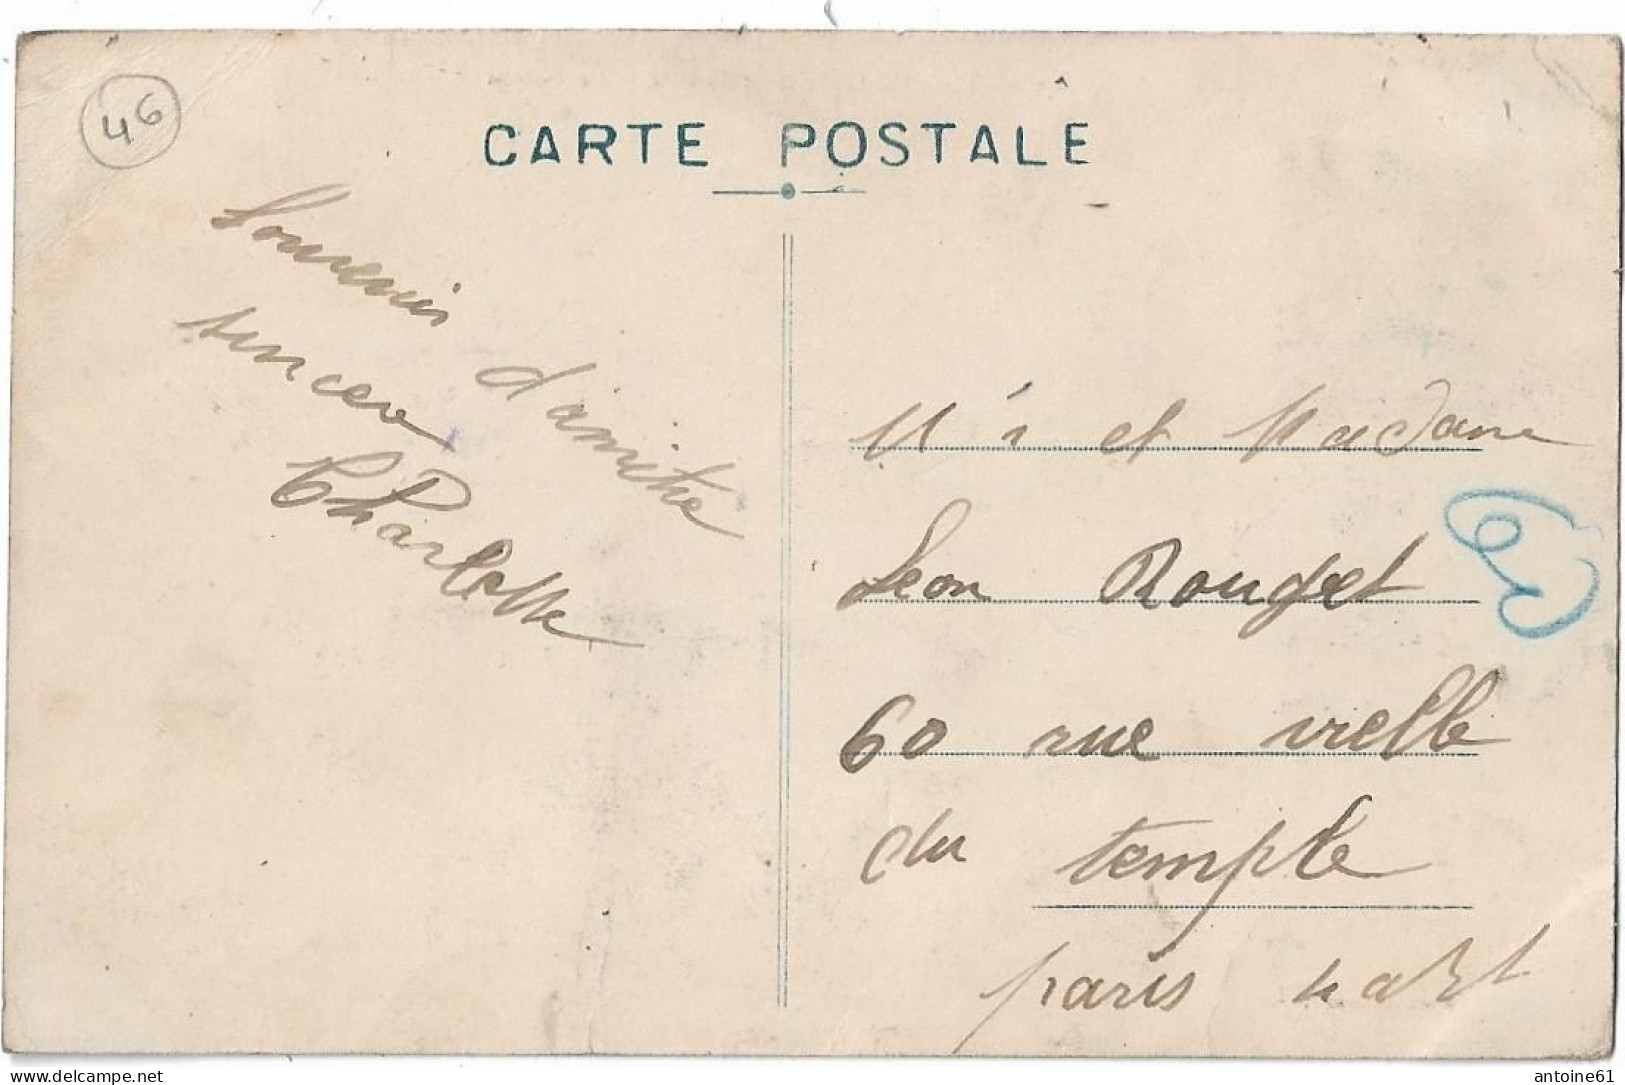 46
CARTE POSTALE
Souvenir d'amitie
sincere
Charlotte
Mr et Madame
Leon Rouget
60 rue vielle
du temple
paris
delcampe.net
antoine61